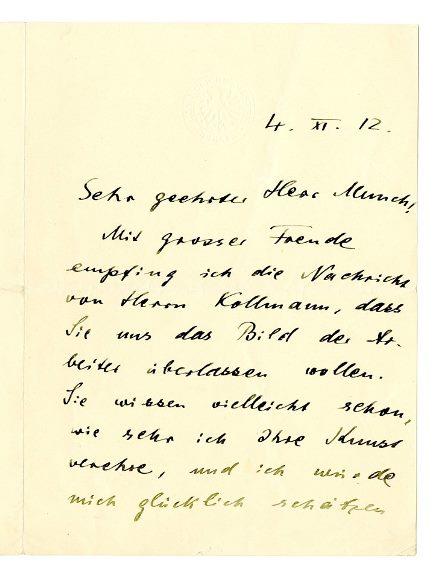 4. XI. 12.
Sehr geehrter Herr Munch,
Mit grosser Freude
empfing ich die Nachricht
von Herrn Kollmann, dass
Sie uns das Bild der Ar-
beiter überlassen wollen.
Sie wissen vielleicht schon,
wie sehr ich Ihre Kunst
verehre, und ich würde
mich glücklich schätzen